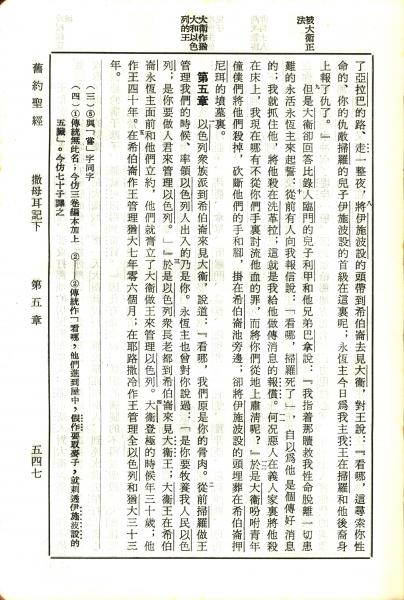 被大衛正
法
大衛作猶
大和以色
列的王
了亞拉巴的路、走一整夜，將伊施波設的頭帶到希伯崙去見大衛，對王說：『看哪，這尋索你性
命的、你的仇敵掃羅的兒子伊施波設的首級在這裏呢；永恆主今日爲我主我王在掃羅和他後裔身
上報了仇了。』
但是大衛卻回答比錄人臨門的兒子利甲和他兄弟巴拿說：『我指着那贖救我性命脫離一切患
難的永活永恆主來起誓：從前有人向我報信說：「看哪，掃羅死了」，自以爲他是個傳好消息
的；我就抓住他，將他殺在洗革拉；這就是我給他做傳消息的報償。何况惡人在義人家裏將他殺
在床上，我現在哪有不從你們手裏討流他血的罪，而將你們從地上肅清呢？』於是大衛吩咐青年
僮僕們將他們殺掉，砍斷他們的手和脚，掛在希伯崙池旁邊；卻將伊施波設的頭埋葬在希伯崙押
尼珥的墳墓裏。
第五章　以色列衆族派到希伯崙來見大衛，說道：『看哪，我們原是你的骨肉。從前掃羅做王
管理我們的時候、率領以色列人出入的乃是你。永恆主也曾對你說過：「是你要牧養我人民以色
列；是你要做人君來管理以色列。」』於是以色列衆長老都到希伯崙來見大衛王；大衛王在希伯
崙永恆主面前和他們立約，他們就膏立了大衛做王來管理以色列。大衛登極的時候年三十歲；他
作王四十年。在希伯崙作王管理猶大七年零六個月；在耶路撒冷作王管理全以色列和猶大三十三
年。
（三）⑥與「嘗」字同字
（四）①傳統無此名；今仿三卷編本加上　②——②傳統作「看哪，他們進到屋中，假作要取麥子，就刺透伊施波設的
五臟」。今仿七十子譯之
舊約聖經　撒母耳記下　第五章　五四七